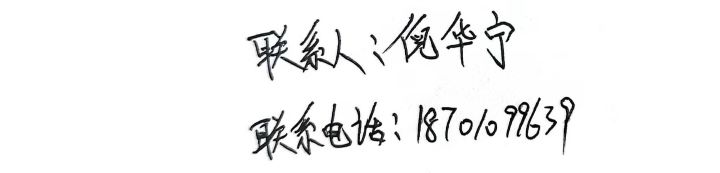 联系人：倪华宁
联系电话：18701099639